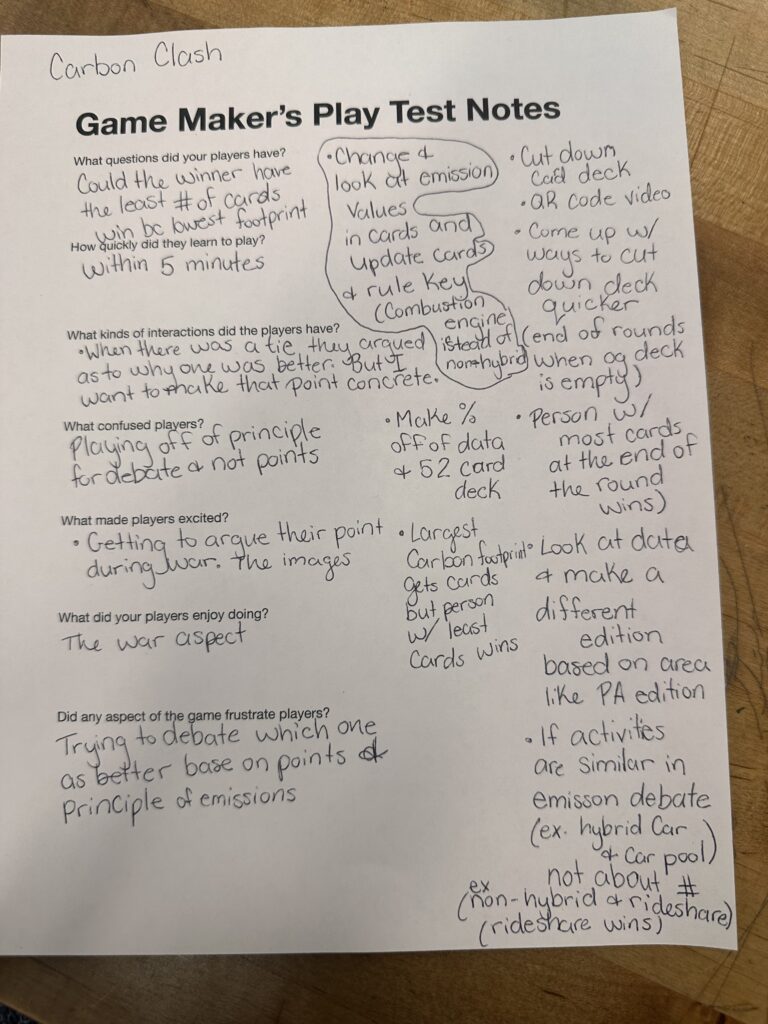 Carbon Clash
Game Maker's Play Test Notes
What questions did your players have?
Could the winner have
the least # of cards
win bc lowest footprint
How quickly did they learn to play?
within 5 minutes
What kinds of interactions did the players have?
•When there was a tie they argued
as to why one was better. But I
want to make that point concrete.
What confused players?
Playing off of principle
for debate & not points
What made players excited?
• Getting to argue their point
during war. The images
What did your players enjoy doing?
The war aspect
Did any aspect of the game frustrate players?
Trying to debate which one
as better base on points &
principle of emissions
•Change &
look at emission
values
in cards and
update cards
& rule key
(Combustion
engine
istead of
non-hybrid)
• Make %
off of data
& 52 card
deck
• Largest
Carbon footprint
gets cards
but person
w/ least
cards wins
• Cut down
card deck
• QR code video
• Come up w/
ways to cut
down deck
quicker
(end of rounds
when og deck
is empty)
• Person w/
most cards
at the end of
the round
wins)
• Look at data
& make a
different
edition
based on area
like PA edition
• If activities
are similar in
emisson debate
(ex. hybrid car
& car pool)
not about #
ex
(non-hybrid & rideshare)
(rideshare wins)